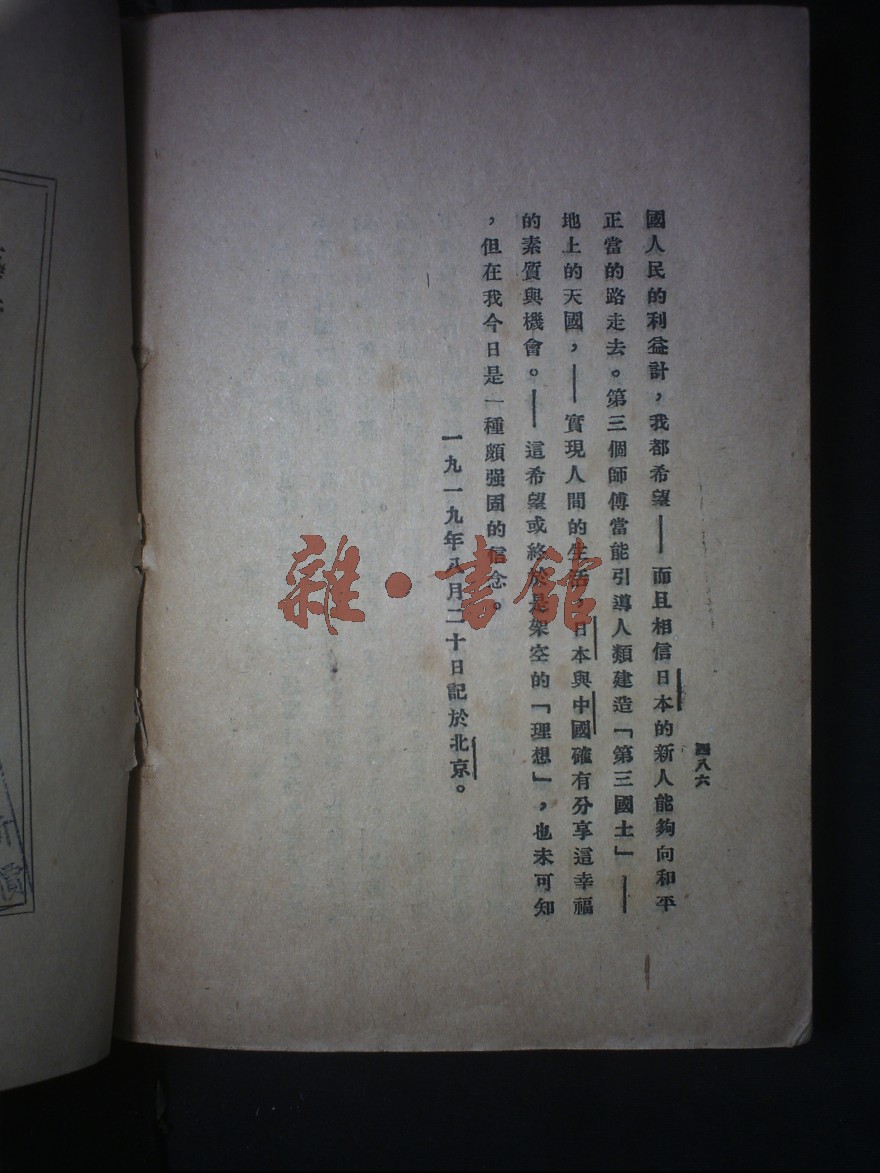 四八六
國人民的利益計，我都希望——而且相信日本的新人能夠向和平
正當的路走去。第三個師傅當能引導人類建造「第三國土」——
地上的天國，——實現人間的生活，日本與中國確有分享這幸福
的素質與機會。——這希望或終於是架空的「理想」，也未可知
，但在我今日是一種頗强固的信念。
一九一九年八月二十日記於北京。
雜·書館